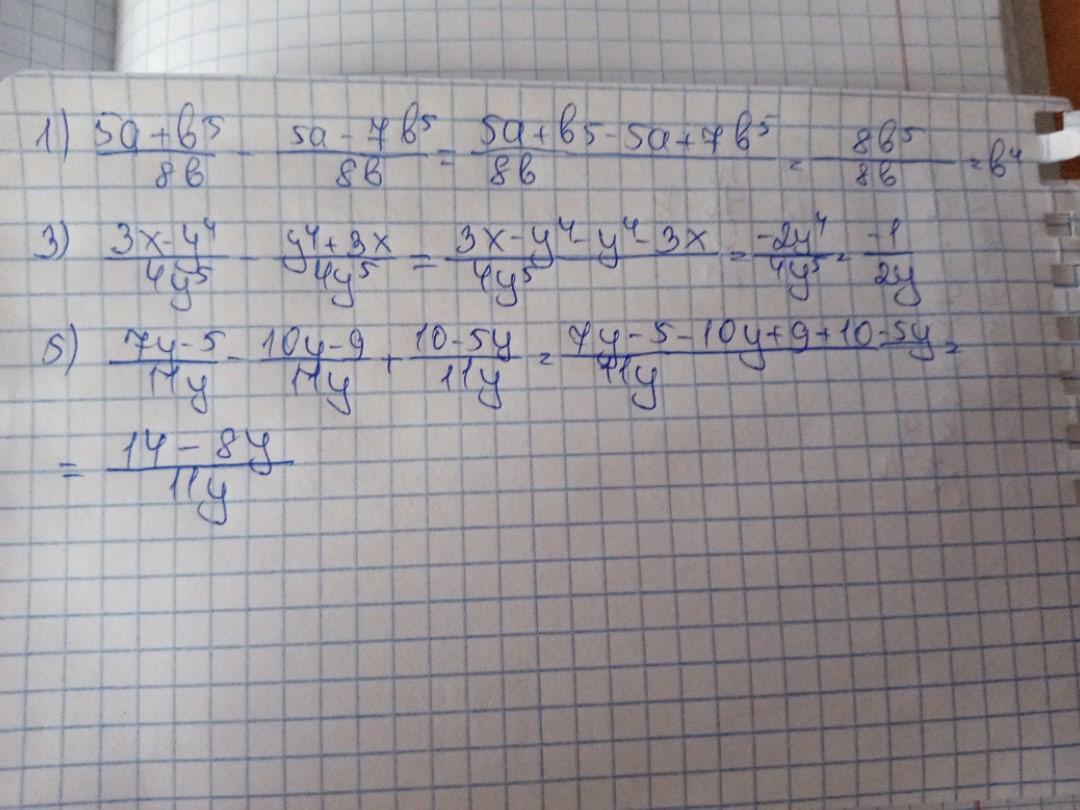 1) (5a+b⁵)/(8b) - (5a-7b⁵)/(8b) = (5a+b5-5a+7b⁵)/(8b) = (8b⁵)/(8b) = b⁴
3) (3x-y⁴)/(4y⁵) - (y⁴+3x)/(4y⁵) = (3x-y⁴-y⁴-3x)/(4y⁵) = (-2y⁴)/(4y⁵) = (-1)/(2y)
5) (7y-5)/(11y) - (10y-9)/(11y) + (10-5y)/(11y) = (7y-5-10y+9+10-5y)/(11y) =
= (14-8y)/(11y)